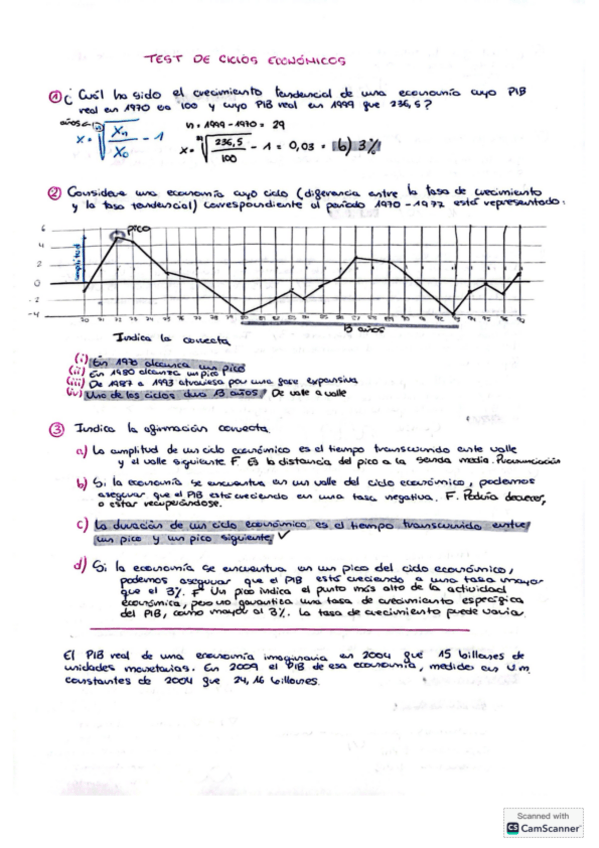 TEST DE CICLOS ECONÓMICOS
① ¿Cuál ha sido el crecimiento tendencial de una economía cuyo PIB
real en 1970 es 100 y cuyo PIB real en 1999 fue 236,5?
años n
x = √ Xn / X0 - 1
n = 1999 - 1970 = 29
x = √ 236,5 / 100 - 1 = 0,03 = b) 3%
② Considere una economía cuyo ciclo (diferencia entre la tasa de crecimiento
y la tasa tendencial) correspondiente al período 1970 - 1997 está representado:
6
4
2
0
-2
-4
amplitud
pico
13 años
Indica la correcta
(i) En 1970 alcanza un pico
(ii) En 1980 alcanza un pico
(iii) De 1987 a 1993 atraviesa por una fase expansiva
(iv) Uno de los ciclos dura 13 años / De valle a valle
③ Indica la afirmación correcta
a) La amplitud de un ciclo económico es el tiempo transcurrido entre valle
y el valle siguiente F. Es la distancia del pico a la senda media. Pronunciación
b) Si la economía se encuentra en un valle del ciclo económico, podemos
asegurar que el PIB está creciendo en una tasa negativa. F. Podría decrecer,
o estar recuperándose.
c) La duración de un ciclo económico es el tiempo transcurrido entre
un pico y un pico siguiente ✓
d) Si la economía se encuentra en un pico del ciclo económico,
podemos asegurar que el PIB está creciendo a una tasa mayor
que el 3%. F Un pico indica el punto más alto de la actividad
económica, pero no garantiza una tasa de crecimiento específica
del PIB, como mayor al 3%. La tasa de crecimiento puede variar.
El PIB real de una economía imaginaria en 2004 fue 15 billones de
unidades monetarias. En 2009 el PIB de esa economía, medido en u.m.
constantes de 2004 fue 24,16 billones.
Scanned with
CS CamScanner